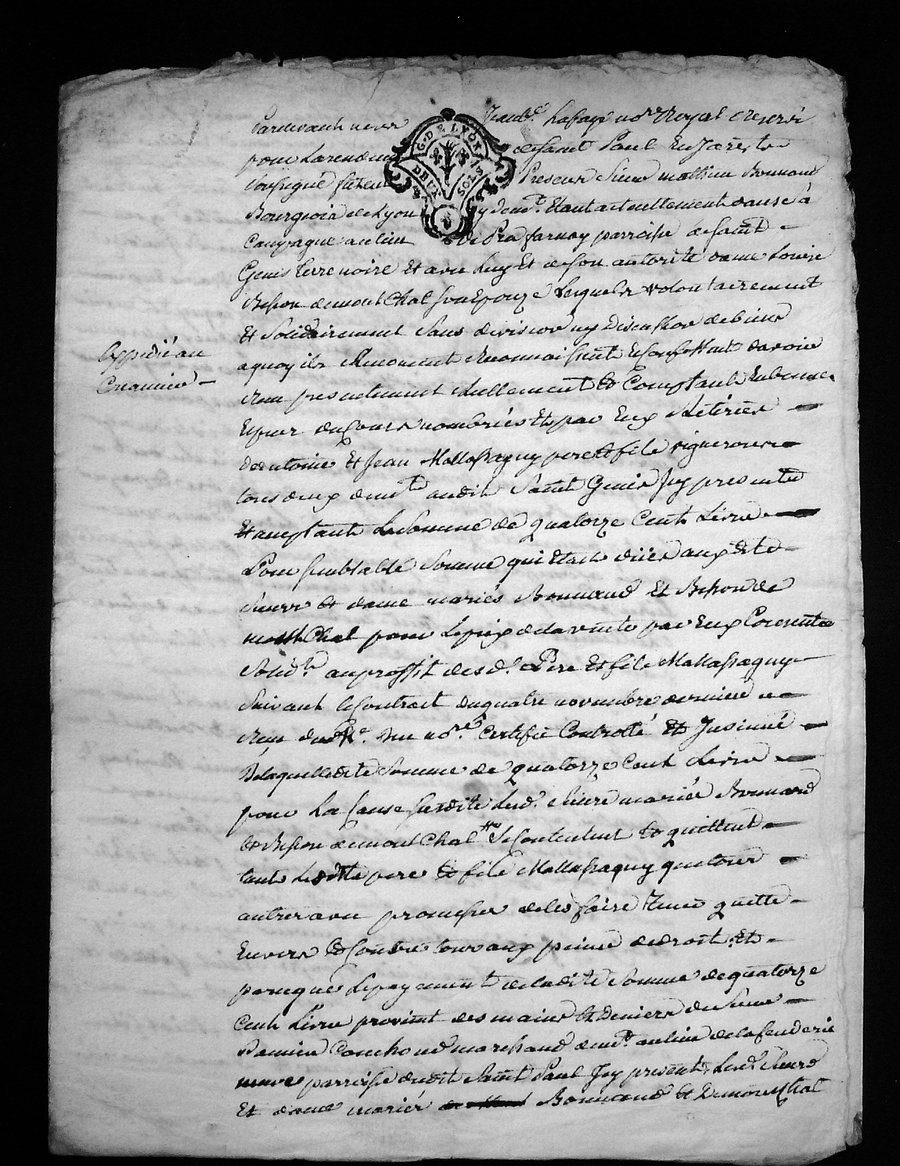 Pardevant nous Jean Bte Lafay nore Royal
pour Sainct Paul En Jarest
soussigné furent Presens Sieur Mathieu Bonnand
Bourgeois de Lyon y demt Etant actuellement dans sa
Campagne au lieu de parroisse de Saint
Genis terre noire Et avec luy Et de son autorité dame Louise
Besson de mont Chal son Epouze Lesquels volontairement
Et Solidairement Sans division ny Discussion de biens
a quoy ils Renoncent Reconnaissent Et Confessent davoir
Reçu presentement Reellement Et Comptant En bonnes
Especes du Cours nombrées Et par Eux Retirées
Expédié au
Creancier
d'antoine Et Jean Mallassagny pere Et fils vignerons
tous deux demt audit Saint Genis Icy presents
Et acceptants La Somme de quatorze Cents Livres
Pour semblable Somme qui Etait düe auxdits
Sieur Et dame mariés Bonnand Et Besson de
mont Chal pour Le prix de la vente par Eux Consentie
Solidre au proffit des ds Pere Et fils Mallassagny
Suivant le Contrat du quatre novembre dernier
Reçu dud Me nore Certifié Controllé Et Insinué
De laquelledite Somme de quatorze Cents Livres
pour La Cause susdite Lesds Sieurs mariés Bonnand
Et Besson de mont Chal Se Contentent Et quittent
tant Lesdits pere Et fils Mallassagny que tous
autres avec promesse de les faire tenir quittes
Envers Et Contre tous aux peines de droit Et
parceque Le payement de ladite Somme de quatorze
Cents Livres provient des mains Et Deniers du Sieur
Damien Couchoud marchand demt au lieu de la fenderie
neuve parroisse dudit Saint Paul Icy present Lesds Sieurs
Et dame mariés Bonnand Et De mont Chal
G. DE LYON
DEUX SOLS